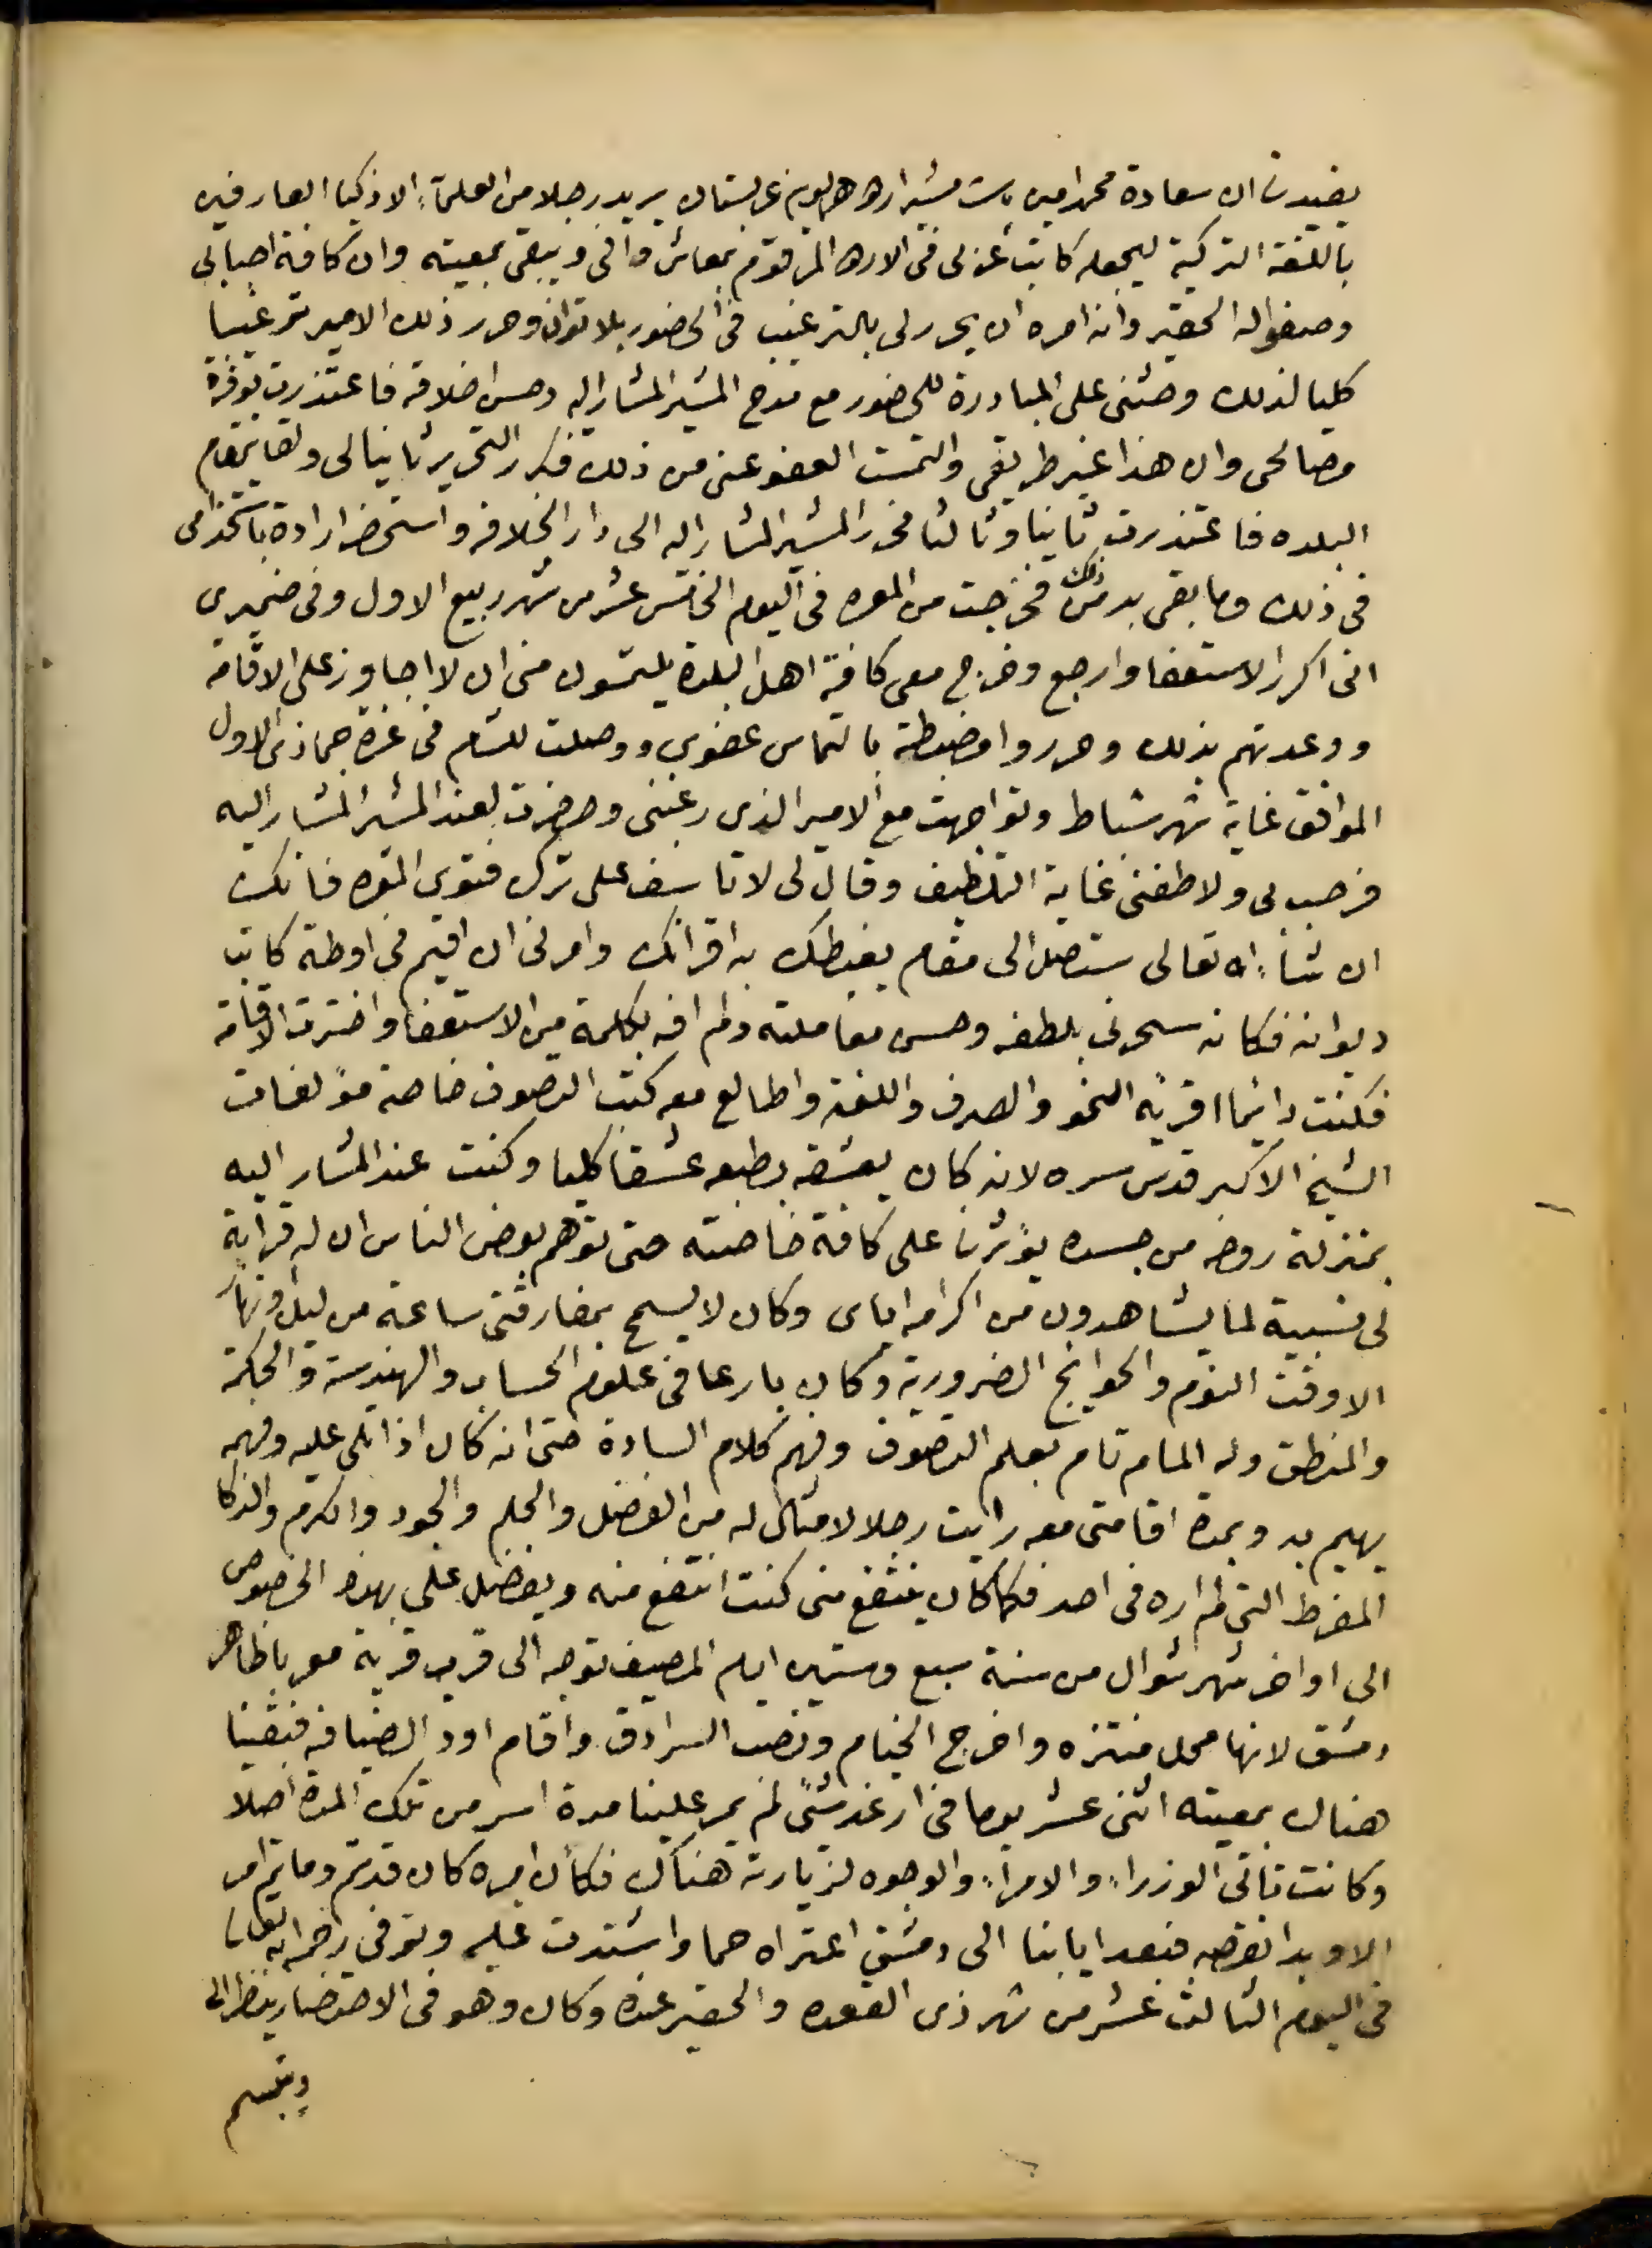 يفيدني ان سعادة محمد امين باشا مشير اردو همايون عربستان يريد رجلا من العلمآء الاذكيا العارفين
باللغة التركية ليجعله كاتب عربى فى الاردو المرقوم بمعاش وافى ويبقى بمعيته وان كافة احبابى
وصفوا له الحقير وانه امره ان يحرر لى بالترغيب فى الحضور بلا توان وحرر ذلك الامير ترغيبا
كليا لذلك وحثنى على المبادرة للحضور مع مدح المشير المشار اليه وحسن اخلاقه فاعتذرت بوفرة
مصالحى وان هذا غير طريقى والتمست العفو عنى من ذلك فكرر التحرير ثانيا لى ولقايمقام
البلده فاعتذرت ثانيا وثالثا فحرر المشير المشار اليه الى دار الخلافه واستحضر ارادة باستخدامى
فى ذلك وما بقى بد من ذلك فخرجت من المعره فى اليوم الخامس عشر من شهر ربيع الاول وفى ضميرى
انى اكرر الاستعفا وارجع وخرج معى كافة اهل البلدة يلتمسون منى ان لا اجاوز على الاقامة
ووعدتهم بذلك وحرروا مضبطة بالتماس عفوى ووصلت للشام فى غرة جماذى الاول
الموافق غاية شهر شباط وتواجهت مع الامير الذى رغبنى وحضرت لعند المشير المشار اليه
فرحب بى ولاطفنى غاية التلطيف وقال لى لا تاسف على ترك فتوى المعره فانك
ان شآء الله تعالى ستصل الى مقام يغبطك به اقرانك وامرنى ان اقيم فى اوطة كاتب
ديوانه فكانه سحرنى بلطفه وحسن معاملته ولم افه بكلمة من الاستعفا واخترت الاقامة
فكنت دائما اقريه النحو والصرف واللغة واطالع معه كتب التصوف خاصة مؤلفات
الشيخ الاكبر قدس سره لانه كان يعشقه بطبعه عشقا كليا وكنت عند المشار اليه
بمنزلة روحه من جسده يؤثرنا على كافة خاصته حتى توهم بعض الناس ان له قرابة
لى نسبية لما يشاهدون من اكرامه اياى وكان لا يسمح بمفارقتى ساعة من ليل او نهار
الا وقت النوم والحوايج الضرورية وكان بارعا فى علوم الحساب والهندسة والحكمة
والمنطق وله المام تام بعلم التصوف وفهم كلام السادة حتى انه كان اذا تلى عليه وفهمه
يهيم به وبمدة اقامتى معه رايت رجلا لا مثال له من الفضل والحلم والجود والكرم والذكا
المفرط التى لم اره فى احد فكما كان ينتفع منى كنت انتفع منه ويفضل على بهذا الخصوص
الى اواخر شهر شوال من سنة سبع وستين ايام المصيف توجه الى قرب قرية معربا ظاهر
دمشق لانها محل منتزه واخرج الخيام ونصب السرادق واقام اود الضيافه فبقينا
هناك بمعيته اثنى عشر يوما فى ارغد شئ لم يمر علينا مدة اسر من تلك المدة اصلا
وكانت تاتى الوزراء والامراء والوجوه لزيارته هناك فكأن امره كان قد تم وما تم امر
الا وبدا نقصه فبعد ايابنا الى دمشق اعتراه حما واشتدت عليه وتوفى رحمه الله تعالى
فى اليوم الثالث عشر من شهر ذى القعده والحقير عنده وكان وهو فى الاحتضار ينظر الى
ويتبسم